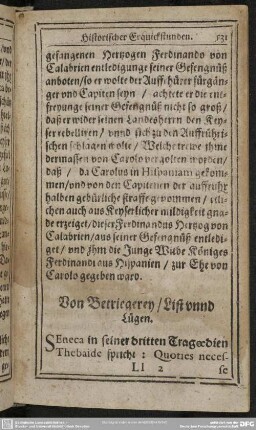 Historischer Erquickstunden. 531
gefangenen Hertzogen Ferdinando von
Calabrien entledigunge seiner Gefengnüß
anboten/so er wolte der Auffrhürer fürgän-
ger vnd Capiten seyn / achtete er die ent-
freyunge seiner Gefengnüß nicht so groß/
daß er wider seinen Landesherrn den Key-
ser rebelliren/ vnnd sich zu den Auffrühri-
schen schlagen wolte / Welche trewe jhme
dermassen von Carolo vergolten worden/
daß / da Carolus in Hispaniam gekom-
men/vnd von den Capitenen der auffruhr
halben gebürliche straffe genommen / etli-
chen auch aus Keyserlicher mildigkeit gna-
de erzeiget/dieser Ferdinandus Hertzog von
Calabrien/aus seiner Gefengnüß entledi-
get/ vnd jhm die Junge Witbe Königes
Ferdinandi aus Hispanien / zur Ehe von
Carolo gegeben ward.
Von Betriegerey / List vnnd
Lügen.
SEneca in seiner dritten Tragœdien
Thebaide spricht: Quoties neces-
Ll 2 se